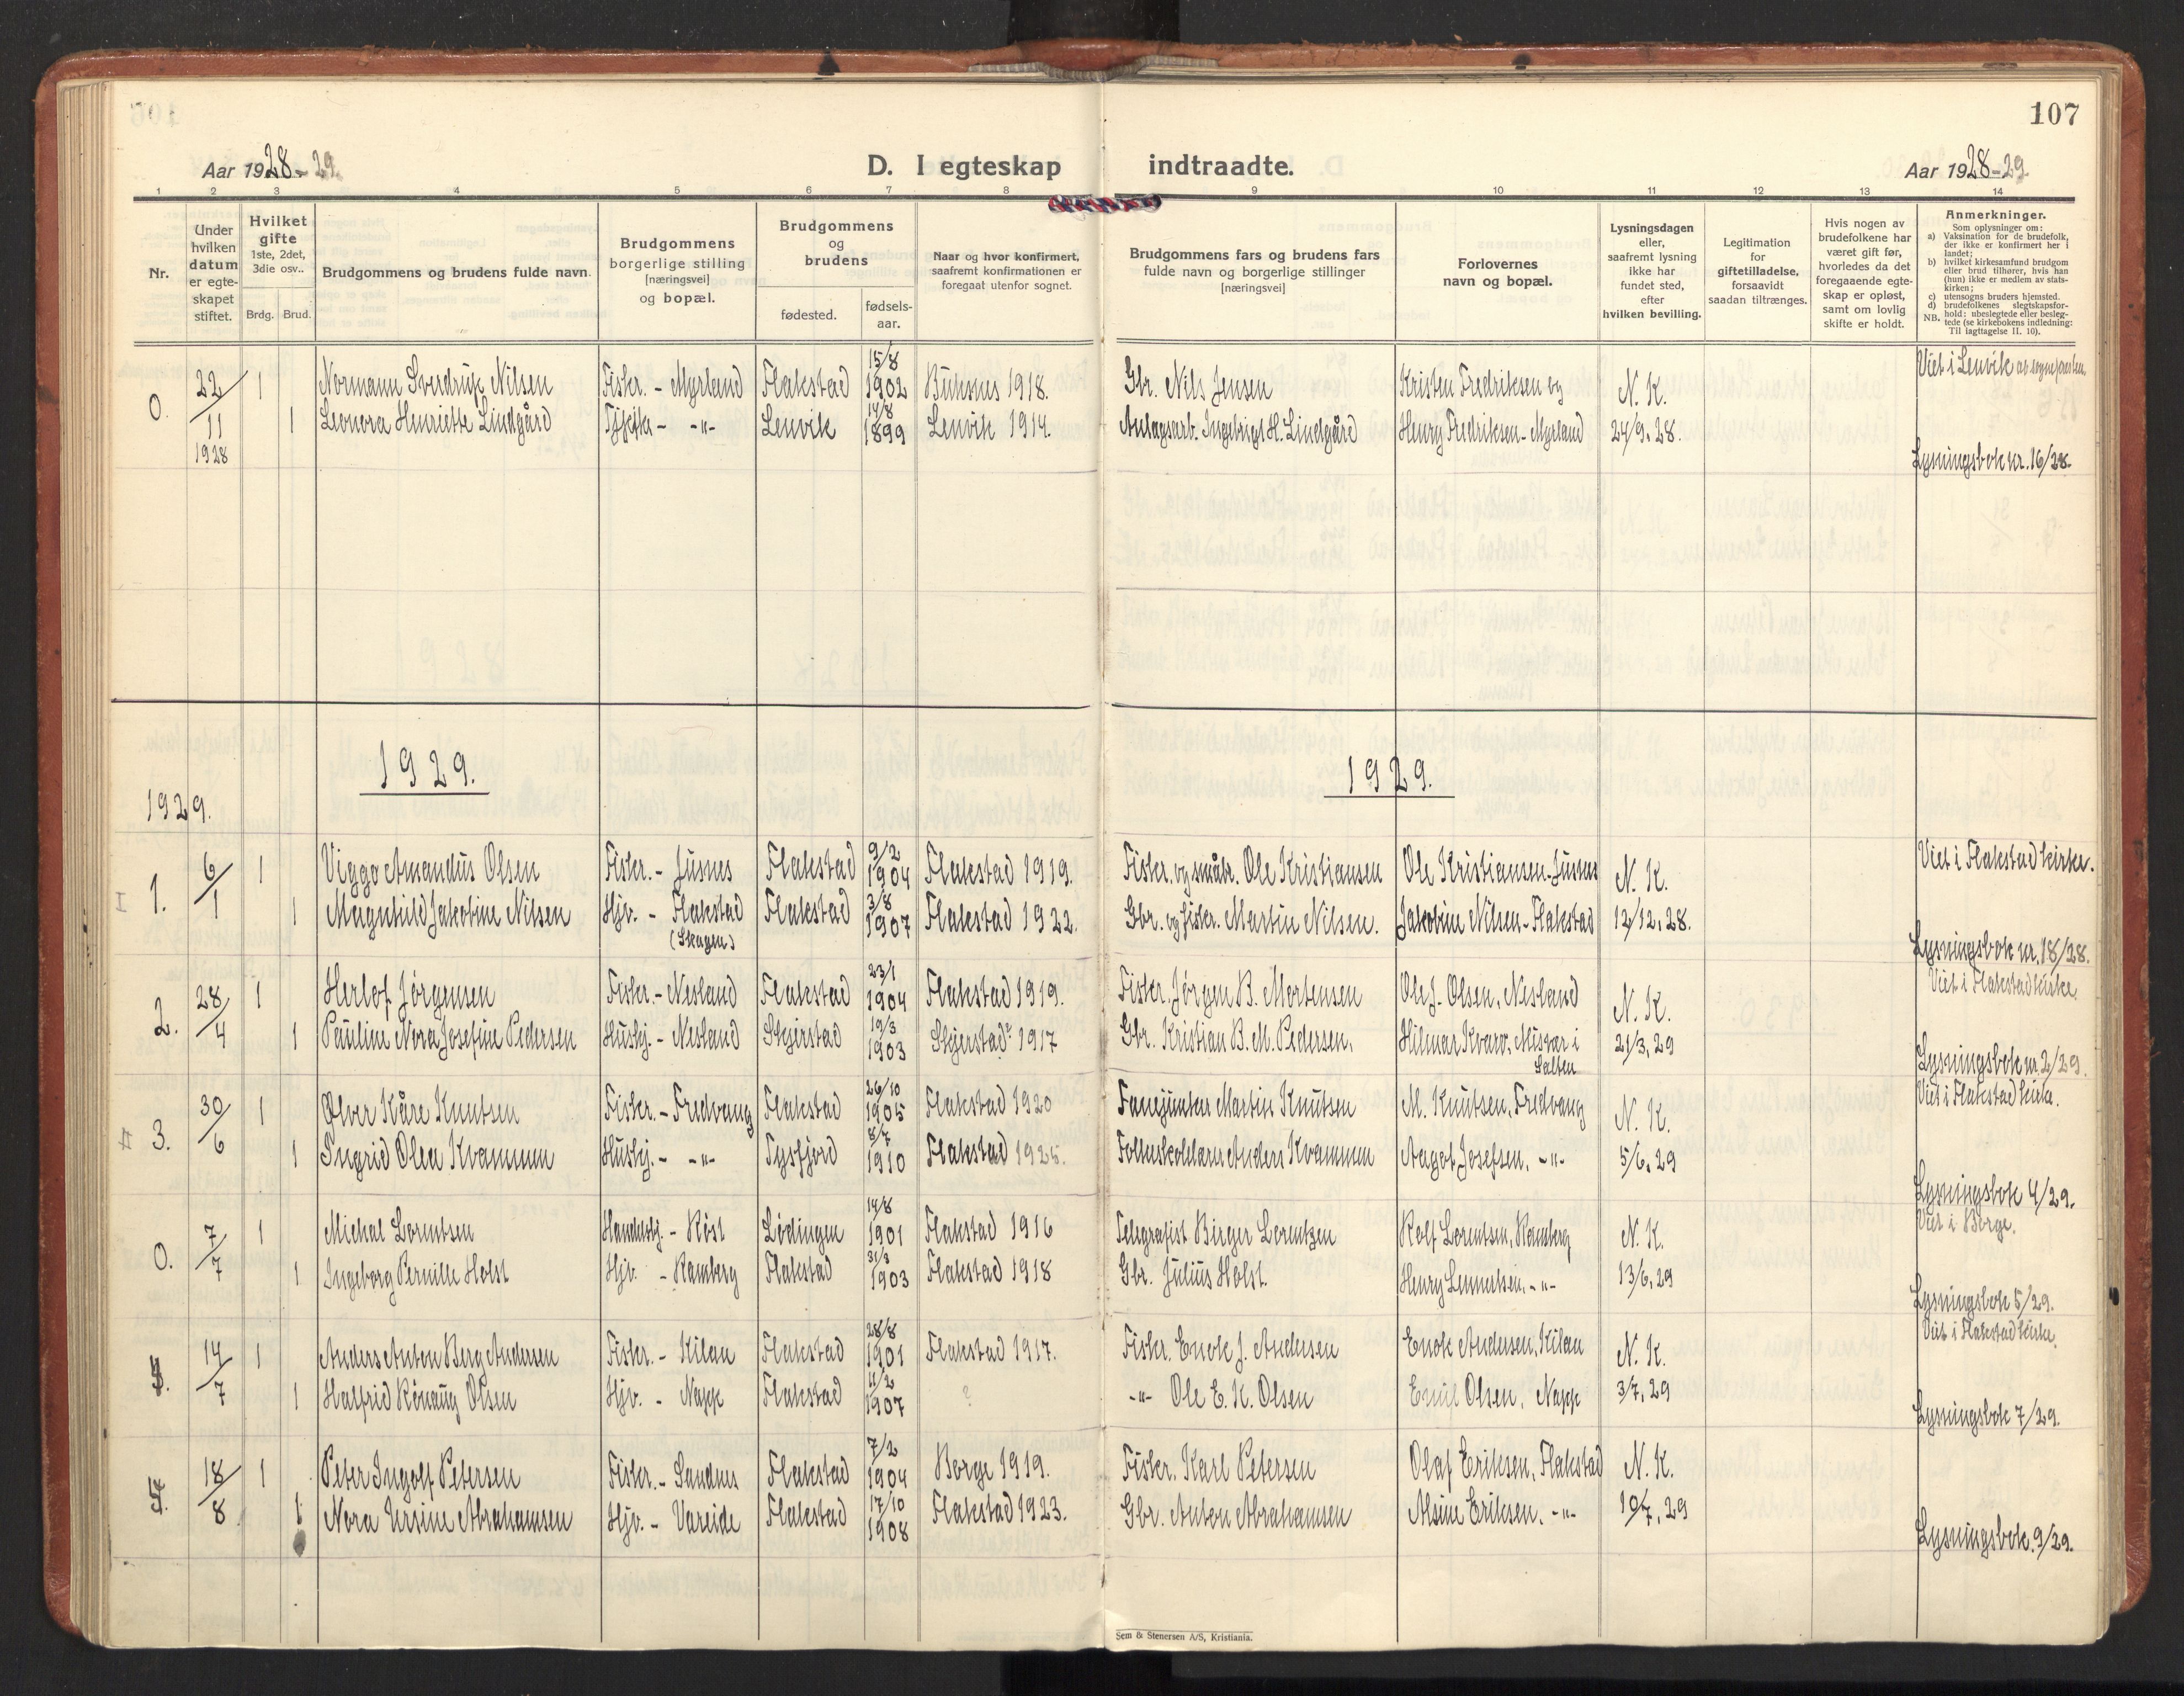 107
Aar 1928-29.
D. I egteskap indtraadte.
Aar 1928-29
1 2 3 4 5 6 7 8 9 10 11 12 13 14
Nr.
Under hvilken datum er egte- skapet stiftet.
Hvilket gifte 1ste, 2det, 3die osv..
Brdg. Brud.
Brudgommens og brudens fulde navn.
Brudgommens borgerlige stilling [næringsvei] og bopæl.
Brudgommens og brudens
fødested.
fødsels- aar.
Naar og hvor konfirmert, saafremt konfirmationen er foregaat utenfor sognet.
Brudgommens fars og brudens fars fulde navn og borgerlige stillinger [næringsvei]
Forlovernes navn og bopæl.
Lysningsdagen eller, saafremt lysning ikke har fundet sted, efter hvilken bevilling.
Legitimation for giftetilladelse, forsaavidt saadan tiltrænges.
Hvis nogen av brudefolkene har været gift før, hvorledes da det foregaaende egte- skap er opløst, samt om lovlig skifte er holdt.
Anmerkninger.
Som oplysninger om:
a) Vaksination for de brudefolk, der ikke er konfirmert her i landet;
b) hvilket kirkesamfund brudgom eller brud tilhører, hvis han (hun) ikke er medlem av stats- kirken;
c) utensogns bruders hjemsted.
d) brudefolkenes slegtskapsfor- hold: ubeslegtede eller besleg- tede (se kirkebokens indledning: Til iagttagelse II. 10).
NB.
0. 22/11 1928 1 Normann Sverdrup Nilsen Fisker. - Myrland Flakstad 15/8 1902 Buksnes 1918. Gbr. Nils Jensen Kristen Fredriksen og N. K. Viet i Lenvik av sognepresten.
1 Leonora Henriette Lindgård - " - Lenvik 14/8 1899 Lenvik 1914. Anlagsarb. Ingebrigt H. Lindgård Henry Fredriksen - Myrland 24/9, 28.
Lysningsbok nr. 16/28.
1929. 1929.
1929.
1. 6/1 1 Viggo Amandus Olsen Fisker. - Jusnes Flakstad 9/2 1904 Flakstad 1919. Fisker. og småbr. Ole Kristiansen Ole Kristiansen - Jusnes N. K. Viet i Flakstad kirke.
I 1 Magnhild Jakobine Nilsen Hjv. - Flakstad (Skagen) Flakstad 3/8 1907 Flakstad 1922. Gbr. og fisker. Martin Nilsen. Jakobine Nilsen - Flakstad 12/12, 28.
Lysningsbok nr. 18/28.
2. 28/4 1 Herlof Jørgensen Fisker. - Nesland Flakstad 23/1 1904 Flakstad 1919. Fisker. Jørgen B. Mortensen Ole J. Olsen, Nesland N. K. Viet i Flakstad kirke.
1 Pauline Nora Josefine Pedersen Hushj. - Nesland Skjerstad 19/3 1903 Skjerstad 1917 Gbr. Kristian B. M. Pedersen. Hilmar Kvarv, Misvær i Salten 21/3, 29
Lysningsbok nr. 2/29.
3. 30/6 1 Ølver Kåre Knutsen Fisker. - Fredvang Flakstad 26/10 1905 Flakstad 1920 Martin Knutsen M. Knutsen, Fredvang N. K. Viet i Flakstad kirke.
II 1 Ingrid Olea Kvammen Hushj. - - " - Tysfjord 8/7 1910 Flakstad 1925. Anders Kvammen Aagot Josefsen, - " - 5/6, 29
Lysningsbok 4/29.
0. 7/7 1 Michal Lorentsen Handelsbj. - Røst Lødingen 14/8 1901 Flakstad 1916 Telegrafist Birger Lorentzen Rolf Lorentsen, Ramberg N. K. Viet i Borge.
1 Ingeborg Pernille Holst Hjv. - Ramberg Flakstad 31/3 1903 Flakstad 1918 Gbr. Julius Holst. Henry - " - 13/6, 29
Lysningsbok 5/29.
4. 14/7 1 Anders Anton Berg Andersen Fisker. - Kilan Flakstad 28/8 1901 Flakstad 1917. Fisker. Enok J. Andersen Enok Andersen, Kilan N. K. Viet i Flakstad kirke
1 Halfrid Rønaug Olsen Hjv. - Napp Flakstad 11/2 1907 ? - " - Ole E. K. Olsen Emil Olsen, Napp 3/7, 29
Lysningsbok 7/29.
5. 18/8 1 Peter Ingolf Petersen Fisker. - Sandnes Flakstad 7/2 1904 Borge 1919. Fisker. Karl Petersen Olaf Eriksen, Flakstad N. K.
1 Nora Ursine Abrahamsen Hjv. - Vareide Flakstad 17/10 1908 Flakstad 1923. Gbr. Anton Abrahamsen Alsine Eriksen. - " - 19/7, 29
Lysningsbok. 9/29.
Sem & Stenersen A/S, Kristiania.